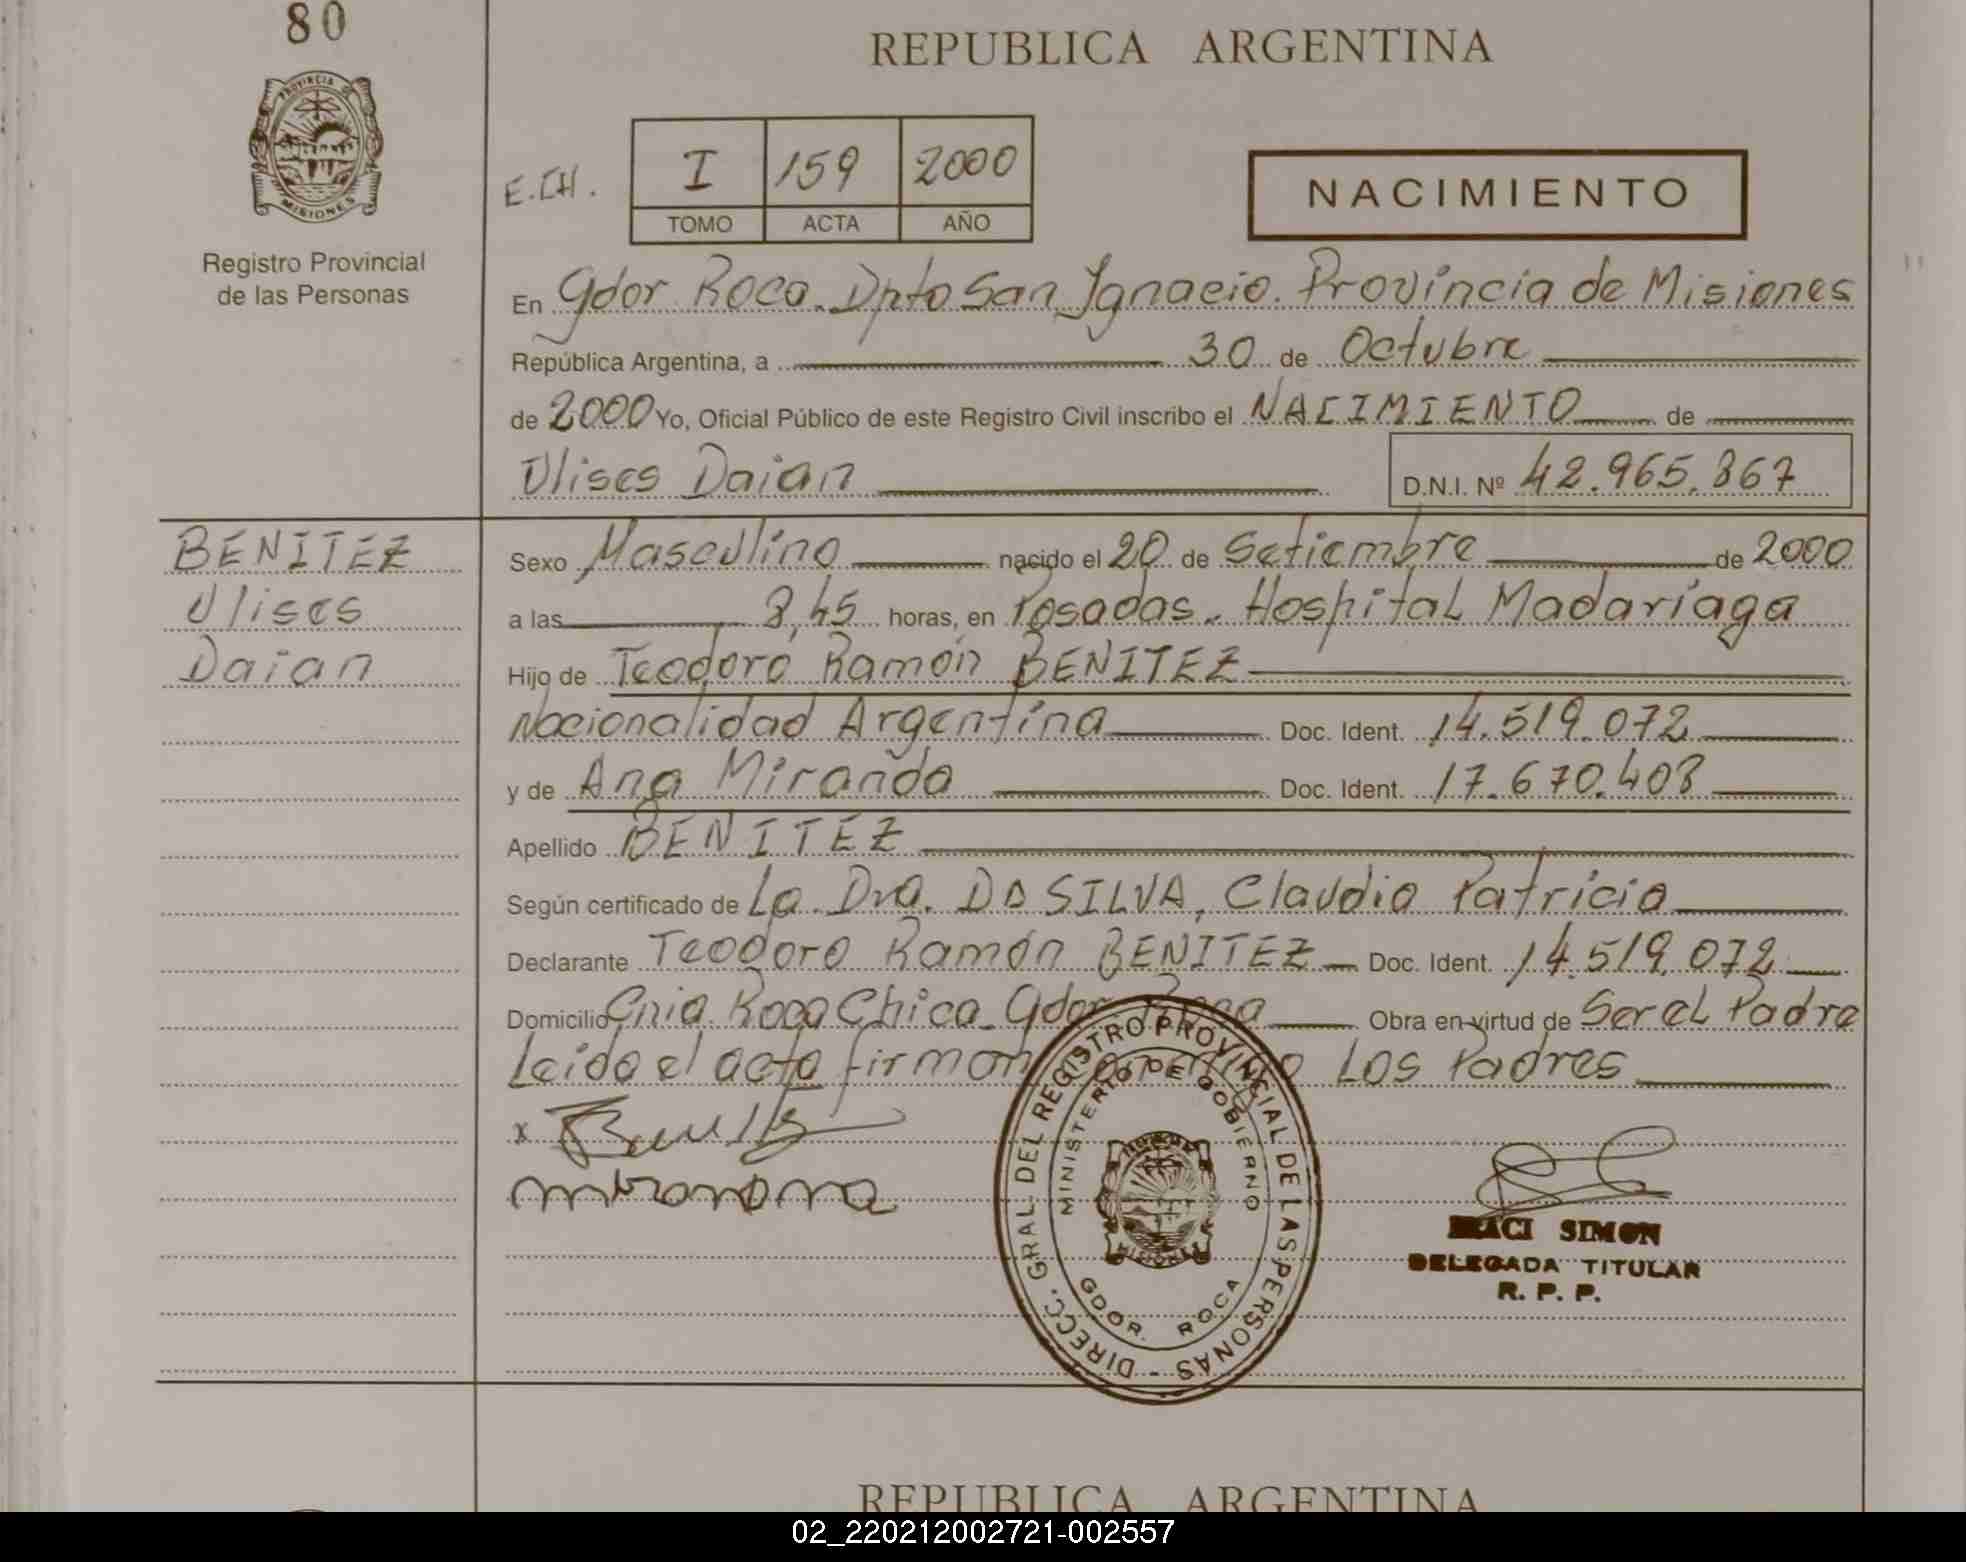 80
REPUBLICA ARGENTINA
PROVINCIA DE
MISIONES
Registro Provincial
de las Personas
E.CH.
I 159 2000
TOMO ACTA AÑO
NACIMIENTO
En Gdor Roca. Dpto San Ignacio. Provincia de Misiones
República Argentina, a 30 de Octubre
de 2000 Yo, Oficial Público de este Registro Civil inscribo el NACIMIENTO de
Ulises Daian D.N.I. Nº 42.965.867
BENITEZ
Ulises
Daian
Sexo Masculino nacido el 20 de Setiembre de 2000
a las 8,45 horas, en Posadas. Hospital Madariaga
Hijo de Teodoro Ramón BENITEZ
Nacionalidad Argentina Doc. Ident. 14.519.072
y de Ana Miranda Doc. Ident. 17.670.408
Apellido BENITEZ
Según certificado de La Dra. DA SILVA, Claudia Patricia
Declarante Teodoro Ramón BENITEZ Doc. Ident. 14.519.072
Domicilio Cnia. Roca Chica. Gdor Roca Obra en virtud de Ser el Padre
Leida el acta firman Los Padres
x
DIRECC. GRAL. DEL REGISTRO PROVINCIAL DE LAS PERSONAS -
MINISTERIO DE GOBIERNO
MISIONES
GDOR. ROCA
SIMON
DELEGADA TITULAR
R. P. P.
REPUBLICA ARGENTINA
02_220212002721-002557